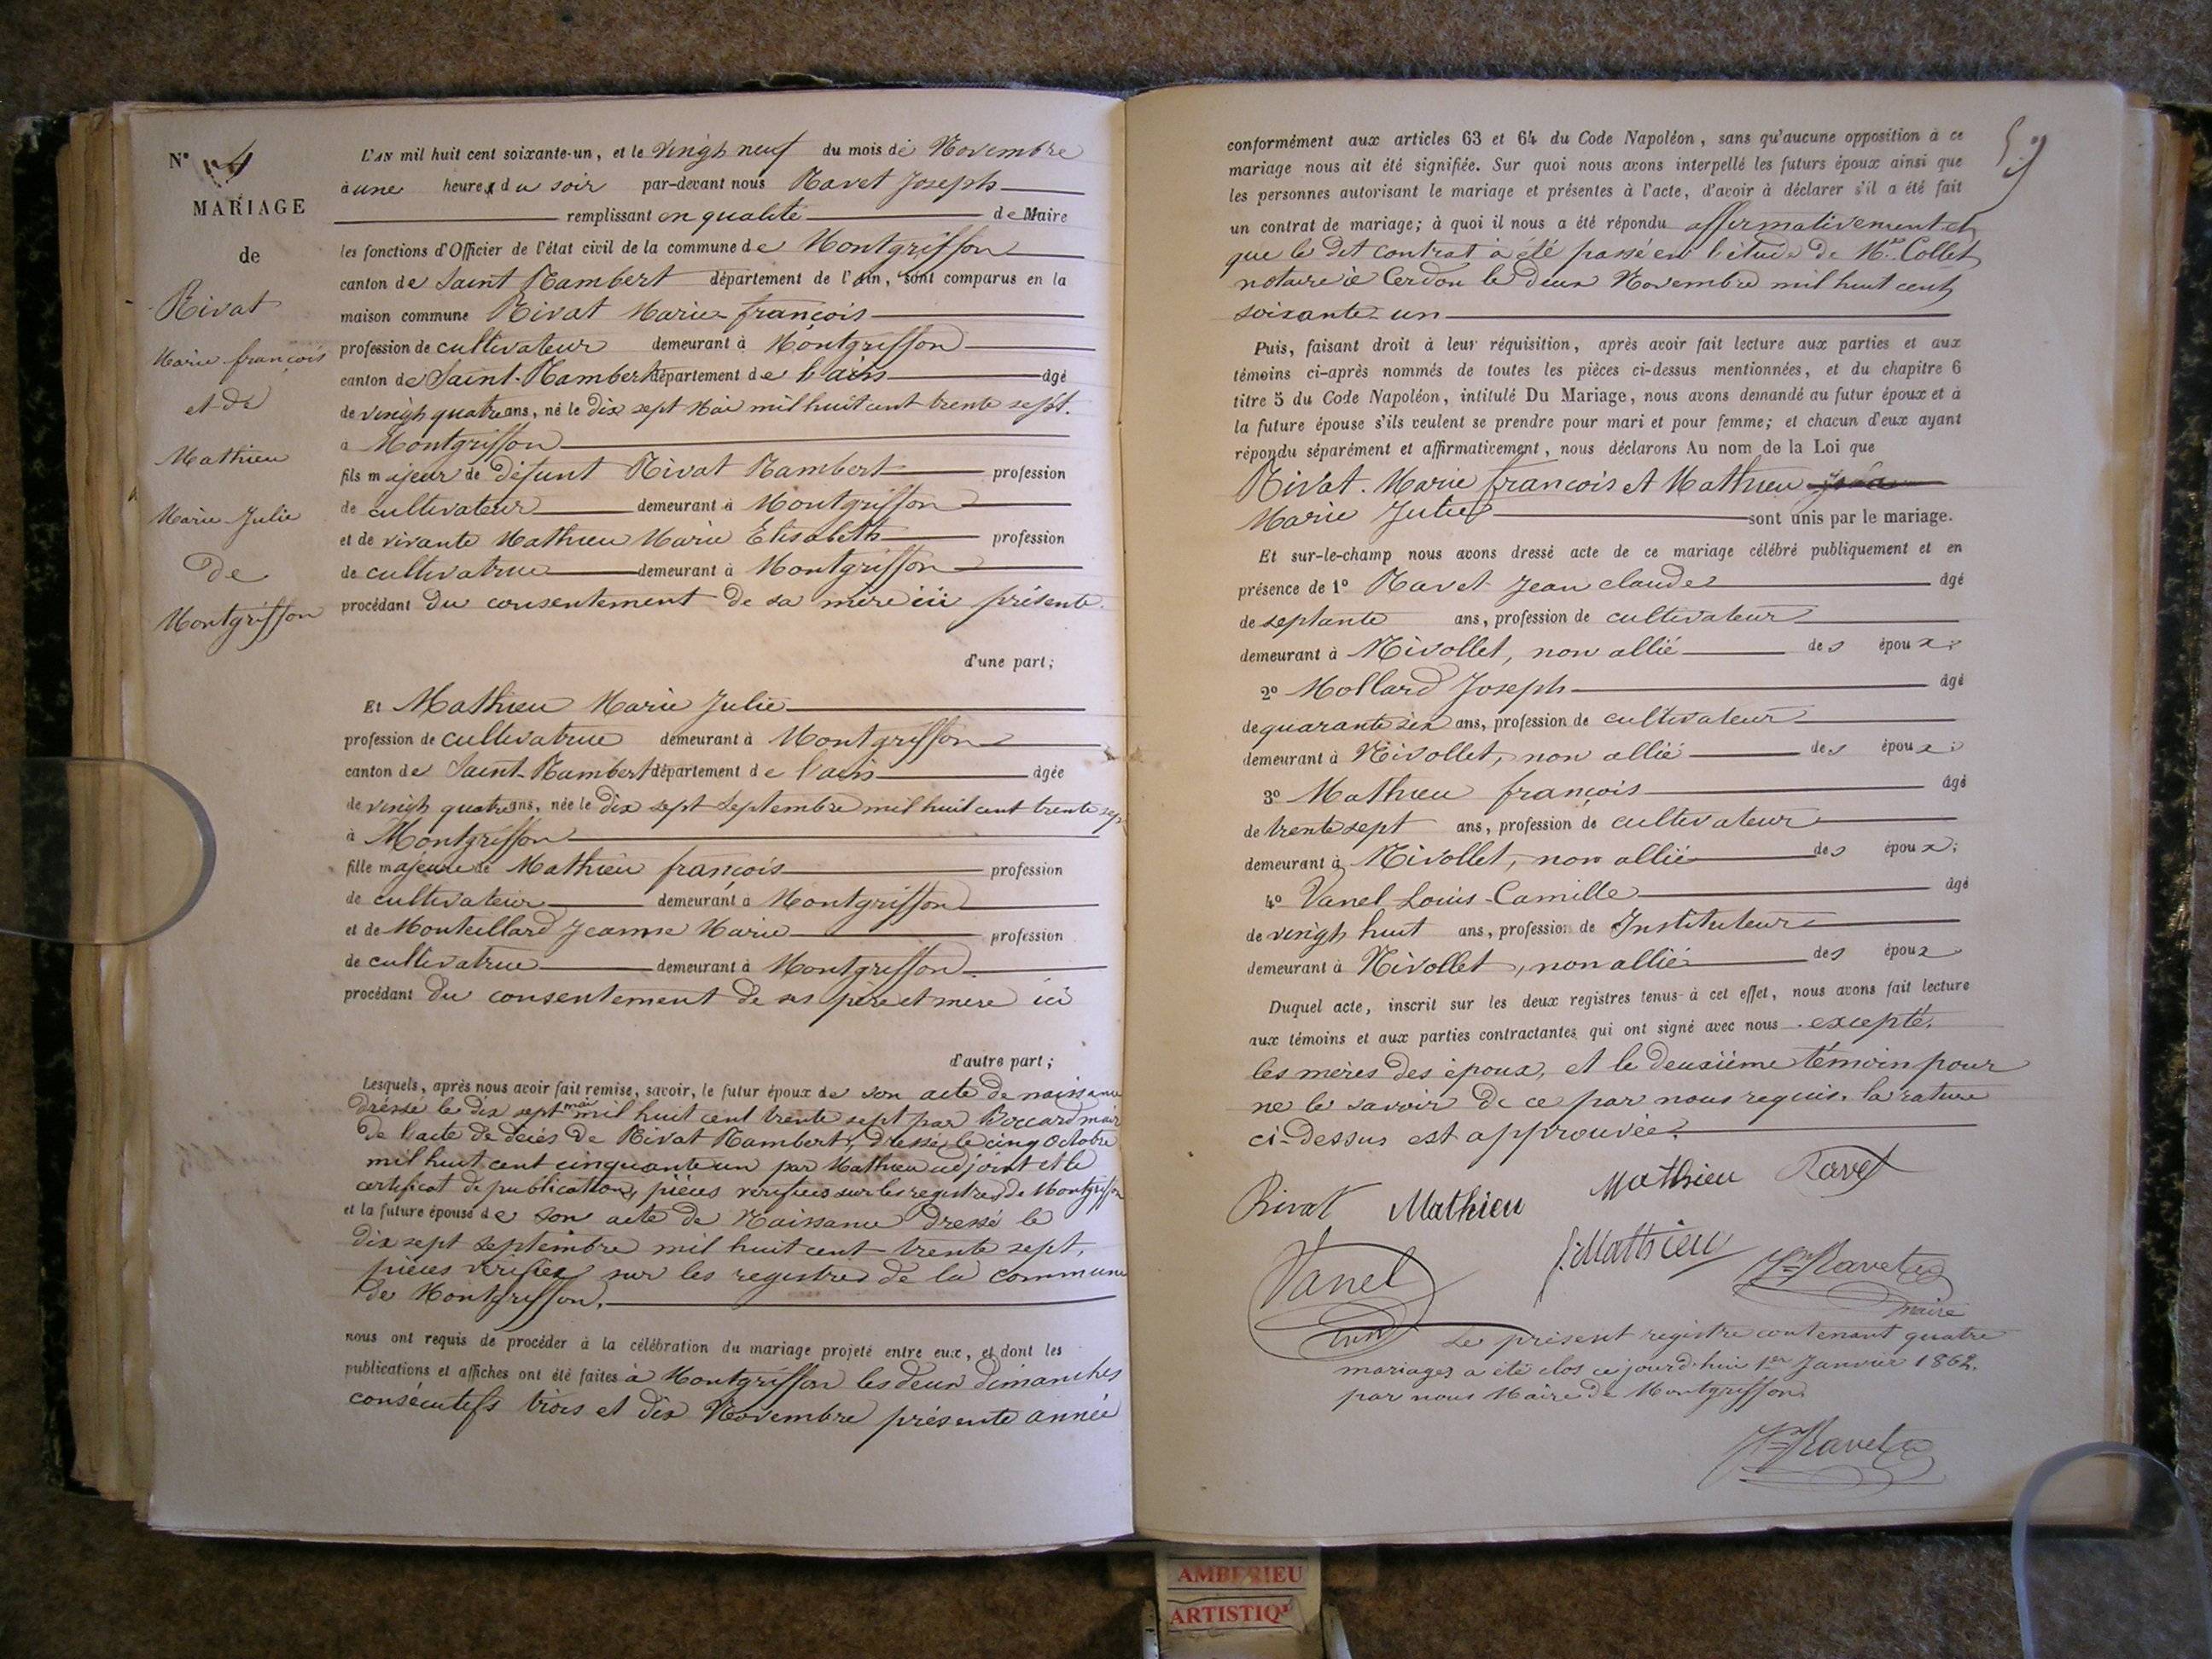 N° 4
MARIAGE
de
Rivat
Marie françois
et de
Mathieu
Marie Julie
De
Montgriffon
L'AN mil huit cent soixante-un, et le vingt neuf du mois de Novembre
à une heure du soir par-devant nous Ravet Joseph
remplissant en qualité de Maire
les fonctions d'Officier de l'état civil de la commune de Montgriffon
canton de Saint Rambert département de l'Ain, sont comparus en la
maison commune Rivat Marie françois
profession de cultivateur demeurant à Montgriffon
canton de Saint-Rambert département de l'ain âgé
de vingt quatre ans, né le dix sept Mai mil huit cent trente sept.
à Montgriffon
fils majeur de défunt Rivat Rambert profession
de cultivateur demeurant à Montgriffon
et de vivante Mathieu Marie Elisabeth profession
de cultivatrice demeurant à Montgriffon
procédant du consentement de sa mère ici présente.
d'une part;
Et Mathieu Marie Julie
profession de cultivatrice demeurant à Montgriffon
canton de Saint-Rambert département de l'ain âgée
de vingt quatre ans, née le dix sept Septembre mil huit cent trente sep
à Montgriffon
fille majeure de Mathieu françois profession
de cultivateur demeurant à Montgriffon
et de Monteillard Jeanne Marie profession
de cultivatrice demeurant à Montgriffon.
procédant du consentement de ses père et mère ici
d'autre part;
Lesquels, après nous avoir fait remise, savoir, le futur époux de son acte de naissance
dréssé le dix sept mai mil huit cent trente sept par Boccard maire
de l'acte de décés de Rivat Rambert, dressé le cinq Octobre
mil huit cent cinquante un par Mathieu adjoint et le
certificat de publication, pièces vérifiées sur les registres de Montgriffon
et la future épouse de son acte de Naissance dressé le
dix sept Septembre mil huit cent trente sept,
pièces vérifiées sur les registres de la commune
de Montgriffon.
nous ont requis de procéder à la célébration du mariage projeté entre eux, et dont les
publications et affiches ont été faites à Montgriffon les deux dimanches
consécutifs trois et dix Novembre présente année
59
conformément aux articles 63 et 64 du Code Napoléon, sans qu'aucune opposition à ce
mariage nous ait été signifiée. Sur quoi nous avons interpellé les futurs époux ainsi que
les personnes autorisant le mariage et présentes à l'acte, d'avoir à déclarer s'il a été fait
un contrat de mariage; à quoi il nous a été répondu affirmativement et
que le dit contrat a été passé en l'étude de Me. Collet
notaire à Cerdon le deux Novembre mil huit cent
soixante-un
Puis, faisant droit à leur réquisition, après avoir fait lecture aux parties et aux
témoins ci-après nommés de toutes les pièces ci-dessus mentionnées, et du chapitre 6
titre 5 du Code Napoléon, intitulé Du Mariage, nous avons demandé au futur époux et à
la future épouse s'ils veulent se prendre pour mari et pour femme; et chacun d'eux ayant
répondu séparément et affirmativement, nous déclarons Au nom de la Loi que
Rivat. Marie françois et Mathieu
Marie Julie sont unis par le mariage.
Et sur-le-champ nous avons dressé acte de ce mariage célébré publiquement et en
présence de 1° Ravet Jean claude âgé
de septante ans, profession de cultivateur
demeurant à Nivollet, non allié des époux;
2° Mollard Joseph âgé
de quarante six ans, profession de cultivateur
demeurant à Nivollet, non allié des époux;
3° Mathieu françois âgé
de trente sept ans, profession de cultivateur
demeurant à Nivollet, non allié des époux;
4° Vanel Louis-Camille âgé
de vingt huit ans, profession de Instituteur
demeurant à Nivollet, non allié des époux
Duquel acte, inscrit sur les deux registres tenus à cet effet, nous avons fait lecture
aux témoins et aux parties contractantes qui ont signé avec nous excepté.
les mères des époux, et le deuxième témoin pour
ne le savoir de ce par nous requis. la rature
ci-dessus est approuvée.
Rivat Mathieu Mathieu Ravet
Vanel f. Mathieu Jh Ravet
maire
Le présent registre contenant quatre
mariages a été clos ce jourd'hui 1er Janvier 1862.
par nous Maire de Montgriffon
Jh Ravet
AMBERIEU
ARTISTIQ